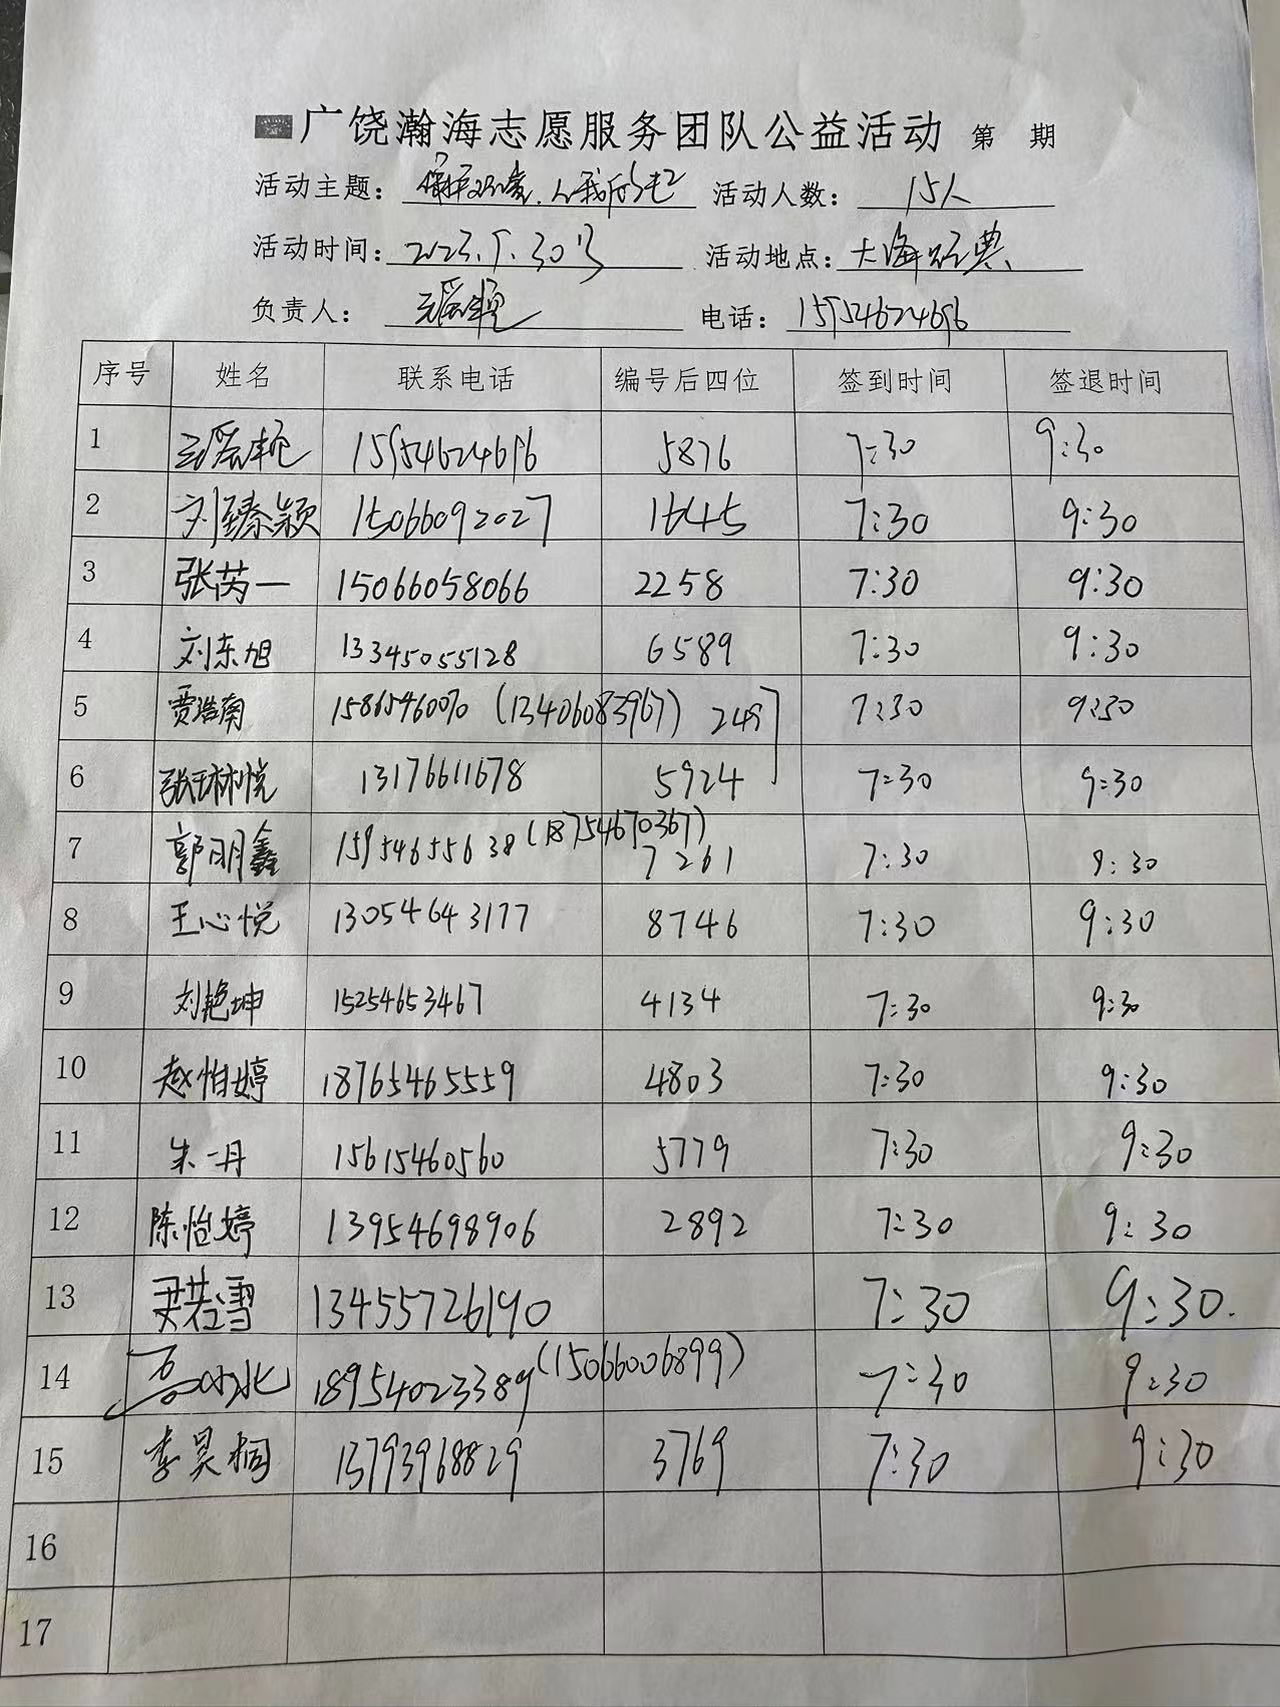 广饶瀚海志愿服务团队公益活动 第 期
活动主题： 保护环境，从我做起 活动人数： 15人
活动时间： 2023.9.30号 活动地点： 大海经典
负责人： 电话： 15954624696
序号 姓名 联系电话 编号后四位 签到时间 签退时间
1 15954624696 5876 7:30 9:30
2 刘臻颖 15066092027 1645 7:30 9:30
3 张芮一 15066058066 2258 7:30 9:30
4 刘东旭 13345055128 6589 7:30 9:30
5 贾浩南 15865460070 (13406083967) 249 7:30 9:30
6 张琳悦 13176611678 5924 7:30 9:30
7 郭明鑫 15954655638 (18754670367) 7261 7:30 9:30
8 王心悦 13054643177 8746 7:30 9:30
9 刘艳坤 15254653467 4134 7:30 9:30
10 赵怡婷 18765465559 4803 7:30 9:30
11 朱一丹 15615460560 5779 7:30 9:30
12 陈怡婷 13954698906 2892 7:30 9:30
13 尹若雪 13455726190 7:30 9:30.
14 18954023389 (15066006899) 7:30 9:30
15 李昊桐 13793968829 3769 7:30 9:30
16
17